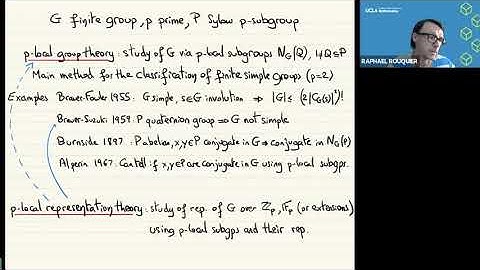 G finite group, p prime, P Sylow p-subgroup
p-local group theory: study of G via p-local subgroups N_G(Q), 1≠Q≤P
Main method for the classification of finite simple groups (p=2)
Examples Brauer-Fowler 1955: G simple, s∈G involution ⇒ |G| ≤ (2|C_G(s)|²)!
Brauer-Suzuki 1959: P quaternion group ⇒ G not simple
Burnside 1897: P abelian, x,y∈P conjugate in G ⇒ conjugate in N_G(P)
Alperin 1967: Can tell if x,y∈P are conjugate in G using p-local subgps.
p-local representation theory: study of rep. of G over ℤ_p, 𝔽_p (or extensions)
using p-local subgps and their rep.
UCLA
Mathematics
RAPHAEL ROUQUIER